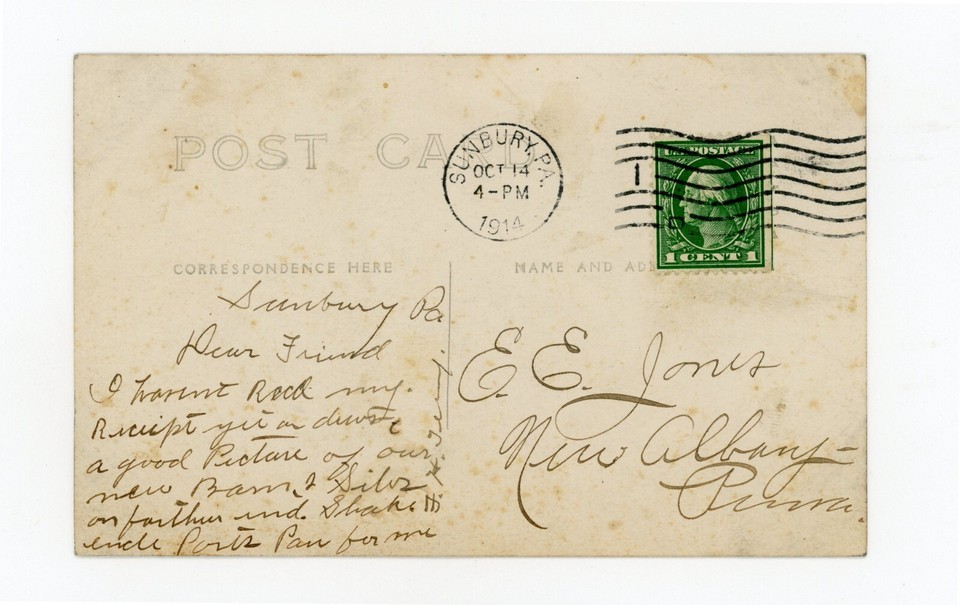 POST CARD
SUNBURY, PA.
OCT 14
4-PM
1914
1
U.S. POSTAGE
1 CENT 1
CORRESPONDENCE HERE
NAME AND AD
Sunbury Pa
Dear Friend
I havent Recd my
Receipt yet or
a good Picture of our
new Barn & Silos
on farther end. Shake
uncle Ports Paw for me
E. E. Jones
New Albany-
Penna.